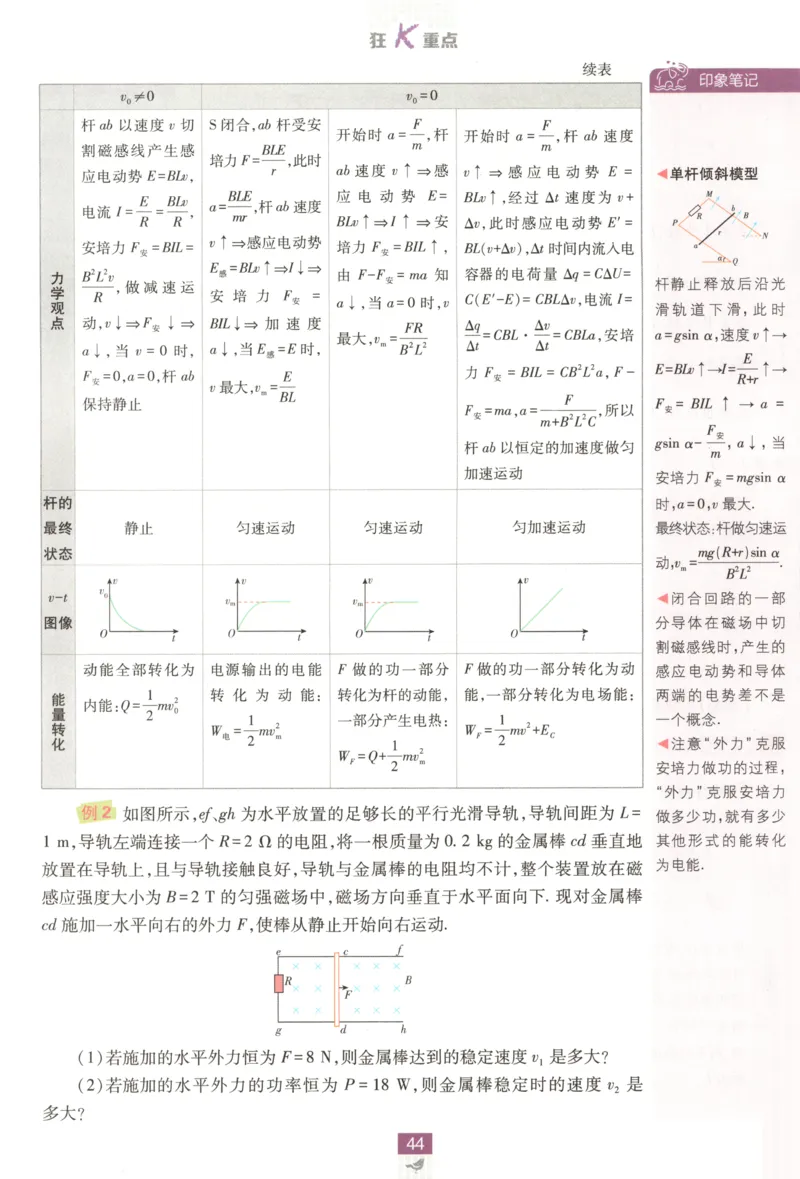 狂K重点
续表
印象笔记
v₀≠0
v₀=0
力学观点
杆 ab 以速度 v 切
割磁感线产生感
应电动势 E=BLv,
电流 I=E/R=BLv/R,
安培力 F安=BIL=
B²L²v/R,做减速运
动,v↓⇒F安↓⇒
a↓,当 v=0 时,
F安=0,a=0,杆 ab
保持静止
S 闭合,ab 杆受安
培力 F=BLE/r,此时
a=BLE/mr,杆 ab 速度
v↑⇒感应电动势
E感=BLv↑⇒I↓⇒
安培力 F安=
BIL↓⇒加速度
a↓,当 E感=E 时,
v 最大,vₘ=E/BL
开始时 a=F/m,杆
ab 速度 v↑⇒感
应电动势 E=
BLv↑⇒I↑⇒安
培力 F安=BIL↑,
由 F-F安=ma 知
a↓,当 a=0 时,v
最大,vₘ=FR/B²L²
开始时 a=F/m,杆 ab 速度
v↑⇒感应电动势 E=
BLv↑,经过 Δt 速度为 v+
Δv,此时感应电动势 E′=
BL(v+Δv),Δt 时间内流入电
容器的电荷量 Δq=CΔU=
C(E′-E)=CBLΔv,电流 I=
Δq/Δt=CBL·Δv/Δt=CBLa,安培
力 F安=BIL=CB²L²a,F-
F安=ma,a=F/(m+B²L²C),所以
杆 ab 以恒定的加速度做匀
加速运动
杆的
最终
状态
静止
匀速运动
匀速运动
匀加速运动
v-t
图像
v
v₀
O
t
v
vₘ
O
t
v
vₘ
O
t
v
O
t
能量转化
动能全部转化为
内能:Q=1/2mv₀²
电源输出的电能
转化为动能:
W电=1/2mvₘ²
F 做的功一部分
转化为杆的动能,
一部分产生电热:
W_F=Q+1/2mvₘ²
F 做的功一部分转化为动
能,一部分转化为电场能:
W_F=1/2mv²+E_C
◀单杆倾斜模型
M
b
R
B
P
r
N
a
α
Q
杆静止释放后沿光
滑轨道下滑,此时
a=gsin α,速度 v↑→
E=BLv↑→I=E/(R+r)↑→
F安=BIL↑→a=
gsin α-F安/m,a↓,当
安培力 F安=mgsin α
时,a=0,v 最大.
最终状态:杆做匀速运
动,vₘ=mg(R+r)sin α/B²L².
◀闭合回路的一部
分导体在磁场中切
割磁感线时,产生的
感应电动势和导体
两端的电势差不是
一个概念.
◀注意“外力”克服
安培力做功的过程,
“外力”克服安培力
做多少功,就有多少
其他形式的能转化
为电能.
例2 如图所示,ef、gh 为水平放置的足够长的平行光滑导轨,导轨间距为 L=
1 m,导轨左端连接一个 R=2 Ω 的电阻,将一根质量为 0.2 kg 的金属棒 cd 垂直地
放置在导轨上,且与导轨接触良好,导轨与金属棒的电阻均不计,整个装置放在磁
感应强度大小为 B=2 T 的匀强磁场中,磁场方向垂直于水平面向下. 现对金属棒
cd 施加一水平向右的外力 F,使棒从静止开始向右运动.
e
c
f
R
F
B
g
d
h
(1)若施加的水平外力恒为 F=8 N,则金属棒达到的稳定速度 v₁ 是多大?
(2)若施加的水平外力的功率恒为 P=18 W,则金属棒稳定时的速度 v₂ 是
多大?
44